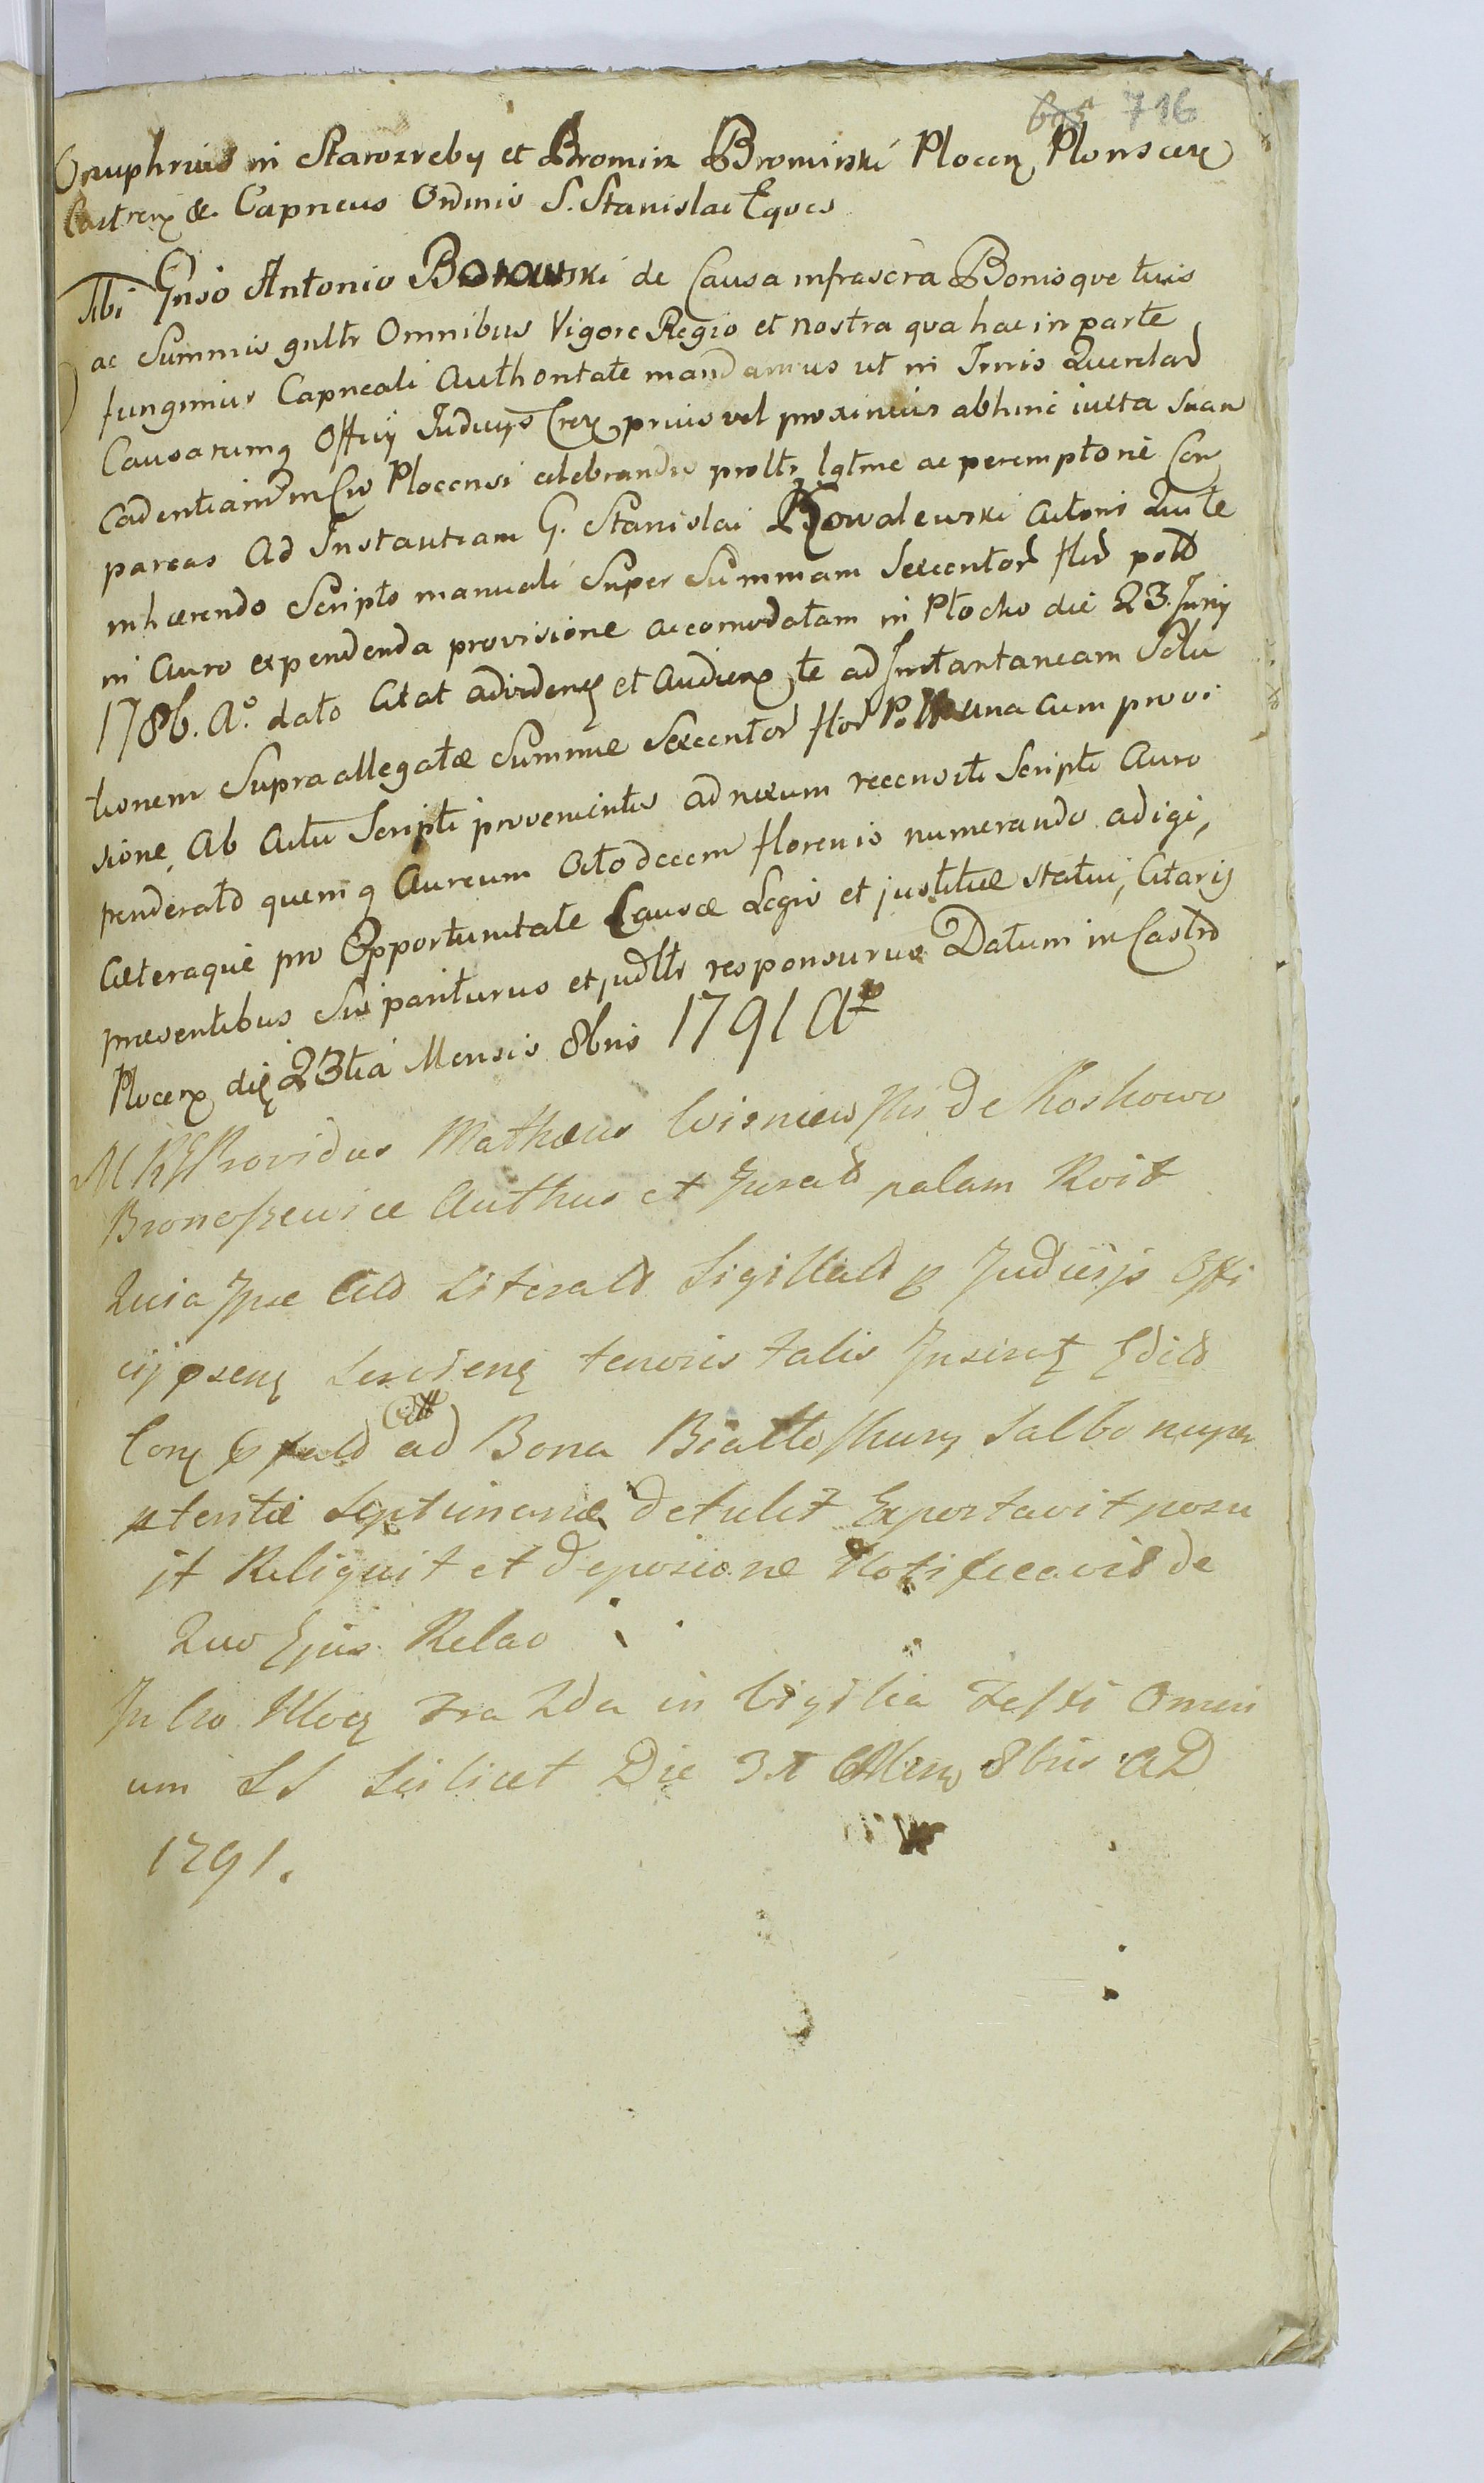 716
Onuphrius in Starozreby et Bromirz Bromirski Plocen Plonscen
Castren & Capneus Ordinis S. Stanislai Eques
Tibi Gnso Antonio Borowski de Causa infrascra Bonisque tuis
ac Summis gnltr Omnibus Vigore Regio et nostra qua hac in parte
fungimur Capneali Authoritate mandamus ut in Trnis Querelard
Causarumq Officij Judicijs Cren prius vel proximius abhinc iuxta suam
Cadentiam in Cro Plocensi celebrandis prsltr lgtme ac peremptorie Con
pareas Ad Instantiam G. Stanislai Kowalewski Actoris Qui te
inhaerendo Scripto manuali Super Summam Sexcentord flrd polld
in Auro expendenda provisione accomodatam in Płocko die 23. Junij
1786. Ao. dato Citat ad videnq et Audienq te ad Instantaneam Solu
tionem Supra allegatae Summae Sexcentor flor Poll una cum provi
sione, Ab Actu Scripti provenientis ad nexum recensiti Scripti Auro
penderatd quemq Aureum Octodecem florenis numerando adigi,
Caeteraque pro Opportunitate Causae Legis et justitiae statui, Citaris
praesentibus Sis pariturus et judltr responsurus Datum in Castro
Plocen die 23tia Mensis 8bris 1791 Ao
Providus Mathaeus Wisniewski de Koskowo
Bronoszewice Authus et Jurad palam Rcit
Quia Ipse Citd Literald Sigillald p Judicijs Offi
cij psenq Serviens tenoris talis Insert Edid
Citt
Cop ad Bona Białłoskury Salbo nuper
pteritae Septimanae detulit Exportavit posu
it Reliquit et de posicione Notificavit de
Quo Ejus Relao
In Cro Ploc fra 2da in Vigilia Festi Omni
um SS Scilicet Die 31 Mens 8bris AD
1791.